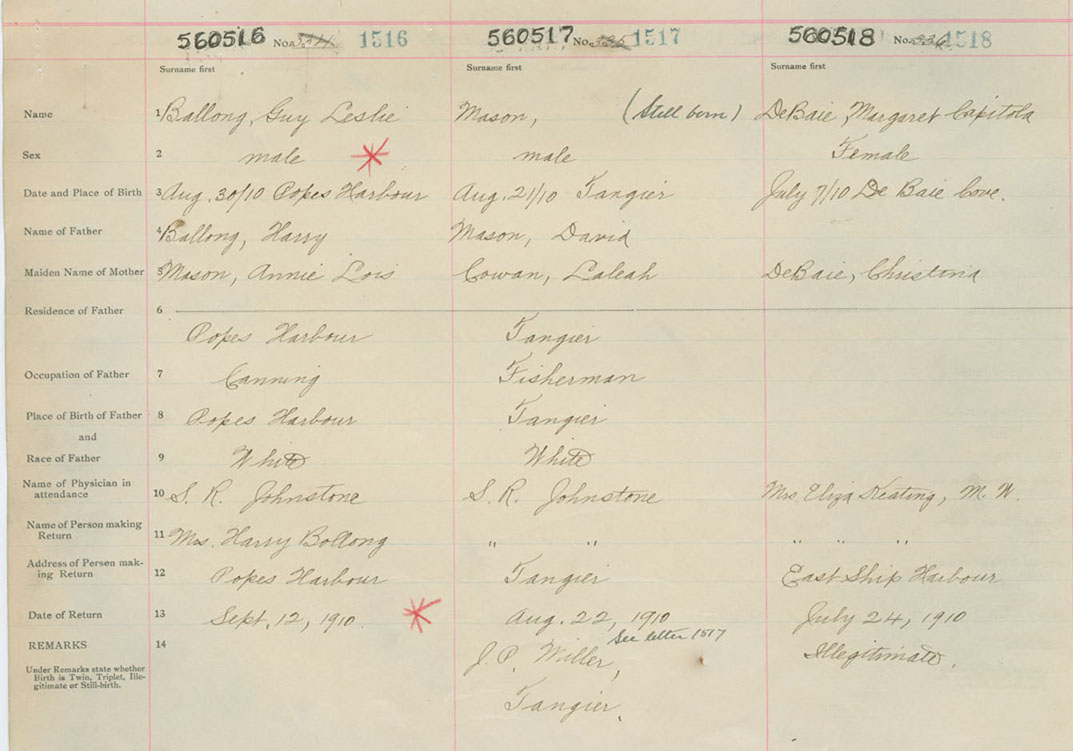 560516 No. 1516 560517 No. 1517 560518 No. 1518
Surname first Surname first Surname first
Name 1 Ballong, Guy Leslie Mason, (Still born) DeBaie, Margaret Capitola
Sex 2 male male Female
Date and Place of Birth 3 Aug. 30/10 Popes Harbour Aug. 21/10 Tangier July 7/10 De Baie Cove.
Name of Father 4 Ballong, Harry Mason, David
Maiden Name of Mother 5 Mason, Annie Lois Cowan, Laleah DeBaie, Christena
Residence of Father 6
Popes Harbour Tangier
Occupation of Father 7 Canning Fisherman
Place of Birth of Father 8 Popes Harbour Tangier
and
Race of Father 9 White White
Name of Physician in
attendance 10 S. R. Johnstone S. R. Johnstone Mrs. Eliza Keating, M. W.
Name of Person making
Return 11 Mrs. Harry Bollong " " " " "
Address of Person mak-
ing Return 12 Popes Harbour Tangier East Ship Harbour
Date of Return 13 Sept. 12, 1910. Aug. 22, 1910 July 24, 1910
See letter 1517
REMARKS 14 J. P. Willer, Illegitimate.
Under Remarks state whether
Birth is Twin, Triplet, Ille-
gitimate or Still-birth.
Tangier.